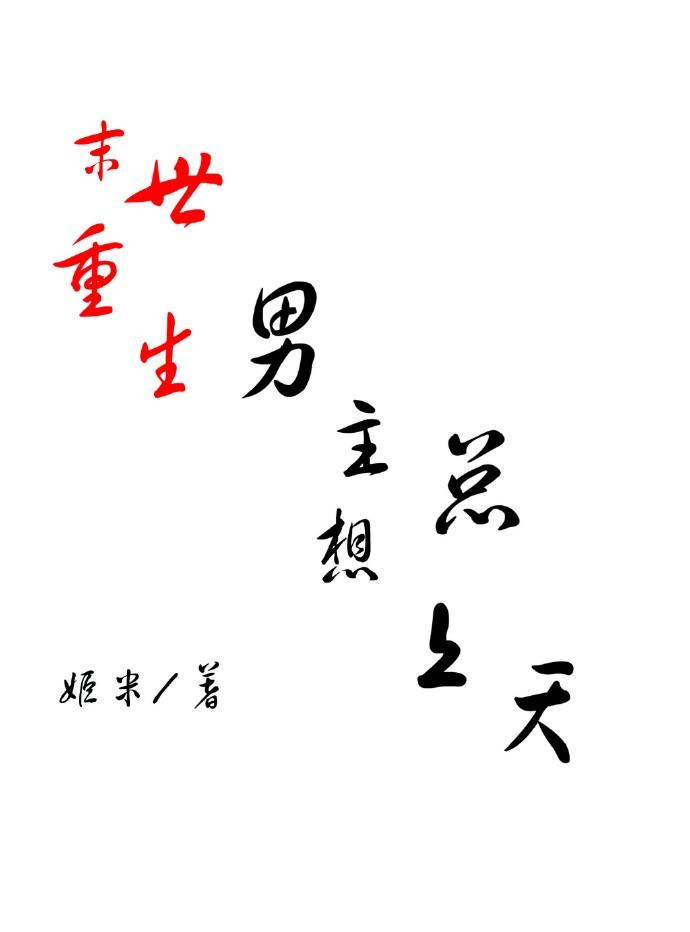 末世
重生
男主总
想上天
姬米/著